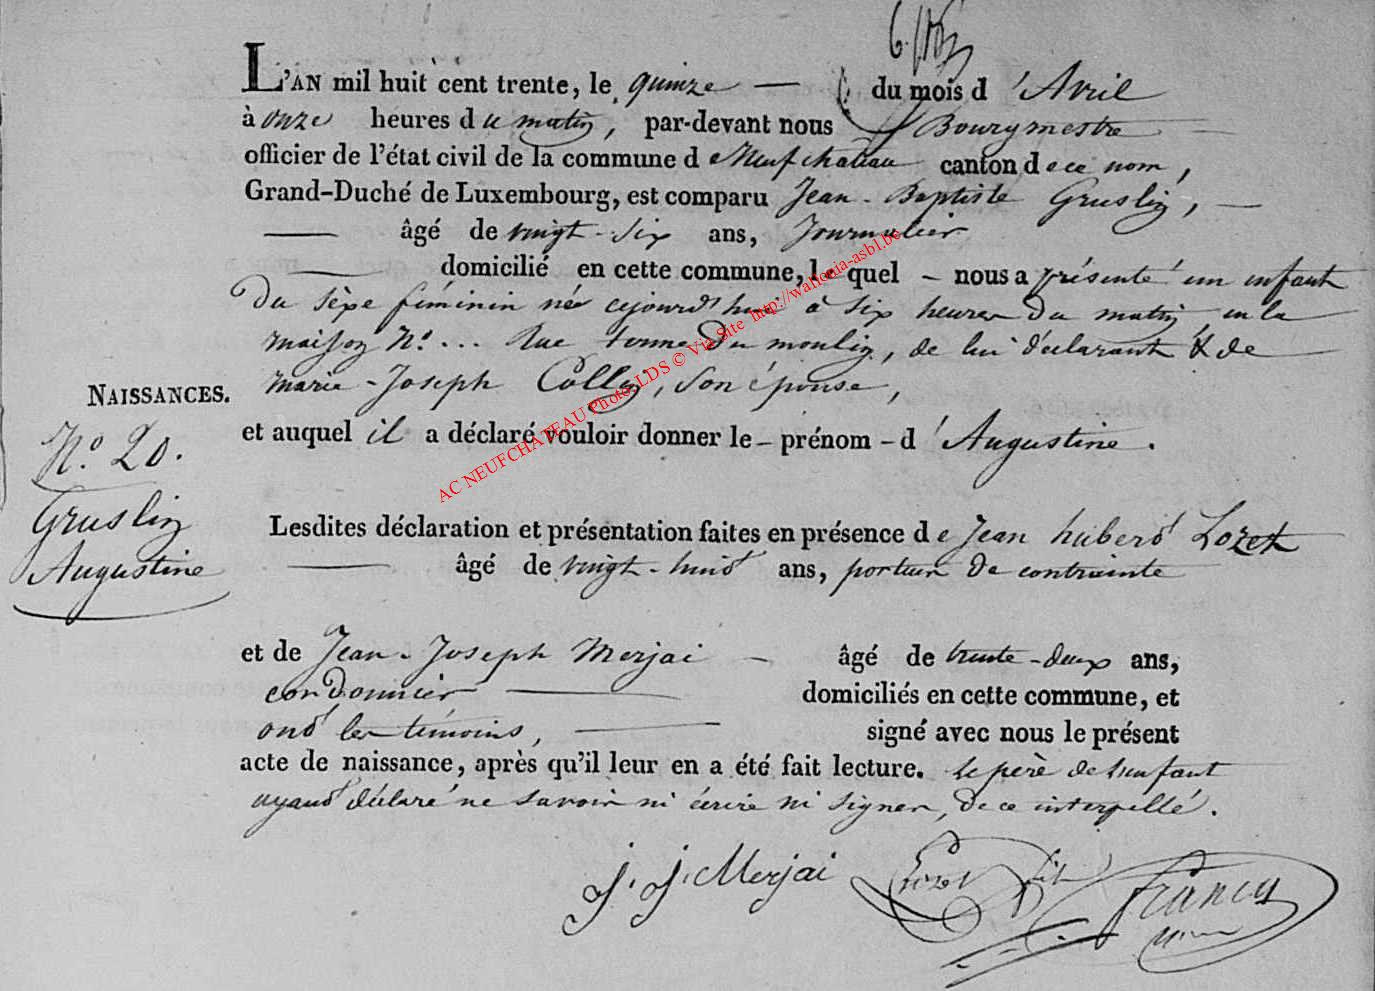 L'AN mil huit cent trente, le quinze — du mois d'Avril
à onze heures du matin, par-devant nous Bourgmestre
officier de l'état civil de la commune de Neufchateau canton de ce nom,
Grand-Duché de Luxembourg, est comparu Jean-Baptiste Gruslin, —
— âgé de vingt-six ans, Journalier
— domicilié en cette commune, lequel – nous a présenté un enfant
du sèxe féminin né cejourd'hui à six heures du matin, en la
maison N°... Rue tenne du moulin, de lui déclarant & de
marie-Joseph Collin, son épouse,
et auquel il a déclaré vouloir donner le – prénom – d'Augustine.
NAISSANCES.
N° 20.
Gruslin
Augustine
Lesdites déclaration et présentation faites en présence de Jean hubert Lozet
— âgé de vingt-huit ans, porteur de contrainte
et de Jean-Joseph Merjai — âgé de trente-deux ans,
cordonnier — domiciliés en cette commune, et
ont les témoins, — signé avec nous le présent
acte de naissance, après qu'il leur en a été fait lecture. le père de l'enfant
ayant déclaré ne savoir ni écrire ni signer, de ce interpellé.
J. J. Merjai Lozet fils Francq
AC NEUFCHATEAU Photo LDS © Via Site http://wallonia-asbl.be